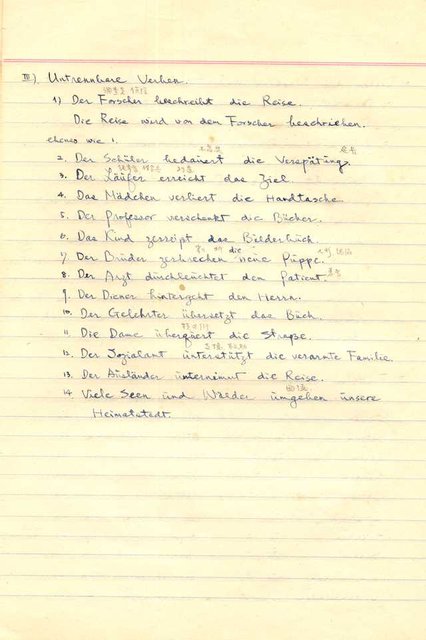 III) Untrennbare Verben.
1) Der Forscher beschreibt die Reise.
Die Reise wird von dem Forscher beschrieben.
ebenso wie 1.
2. Der Schüler bedauert die Verspätung.
3. Der Läufer erreicht das Ziel.
4. Das Mädchen verliert die Handtasche.
5. Der Professor verschenkt die Bücher.
6. Das Kind zerreipt das Bilderbuch
die
7. Der Brüder zerbrechen neue Püppe.
8. Der Arzt dürchleuchtet den Patient.
9. Der Diener hintergeht den Herrn.
10. Der Gelehrter übersetzt das Büch.
11. Die Dame überquert die Straße.
12. Der Sozialamt unterstützt die verarmte Familie.
13. Der Ausländer unternimmt die Reise.
14. Viele Seen und Wälder umgeben unsere
Heimatstadt.